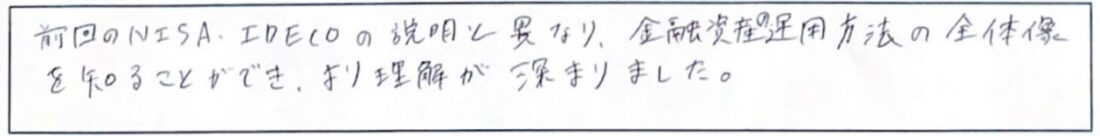 前回のNISA・IDECOの説明と異なり、金融資産の運用方法の全体像
を知ることができ、より理解が深まりました。